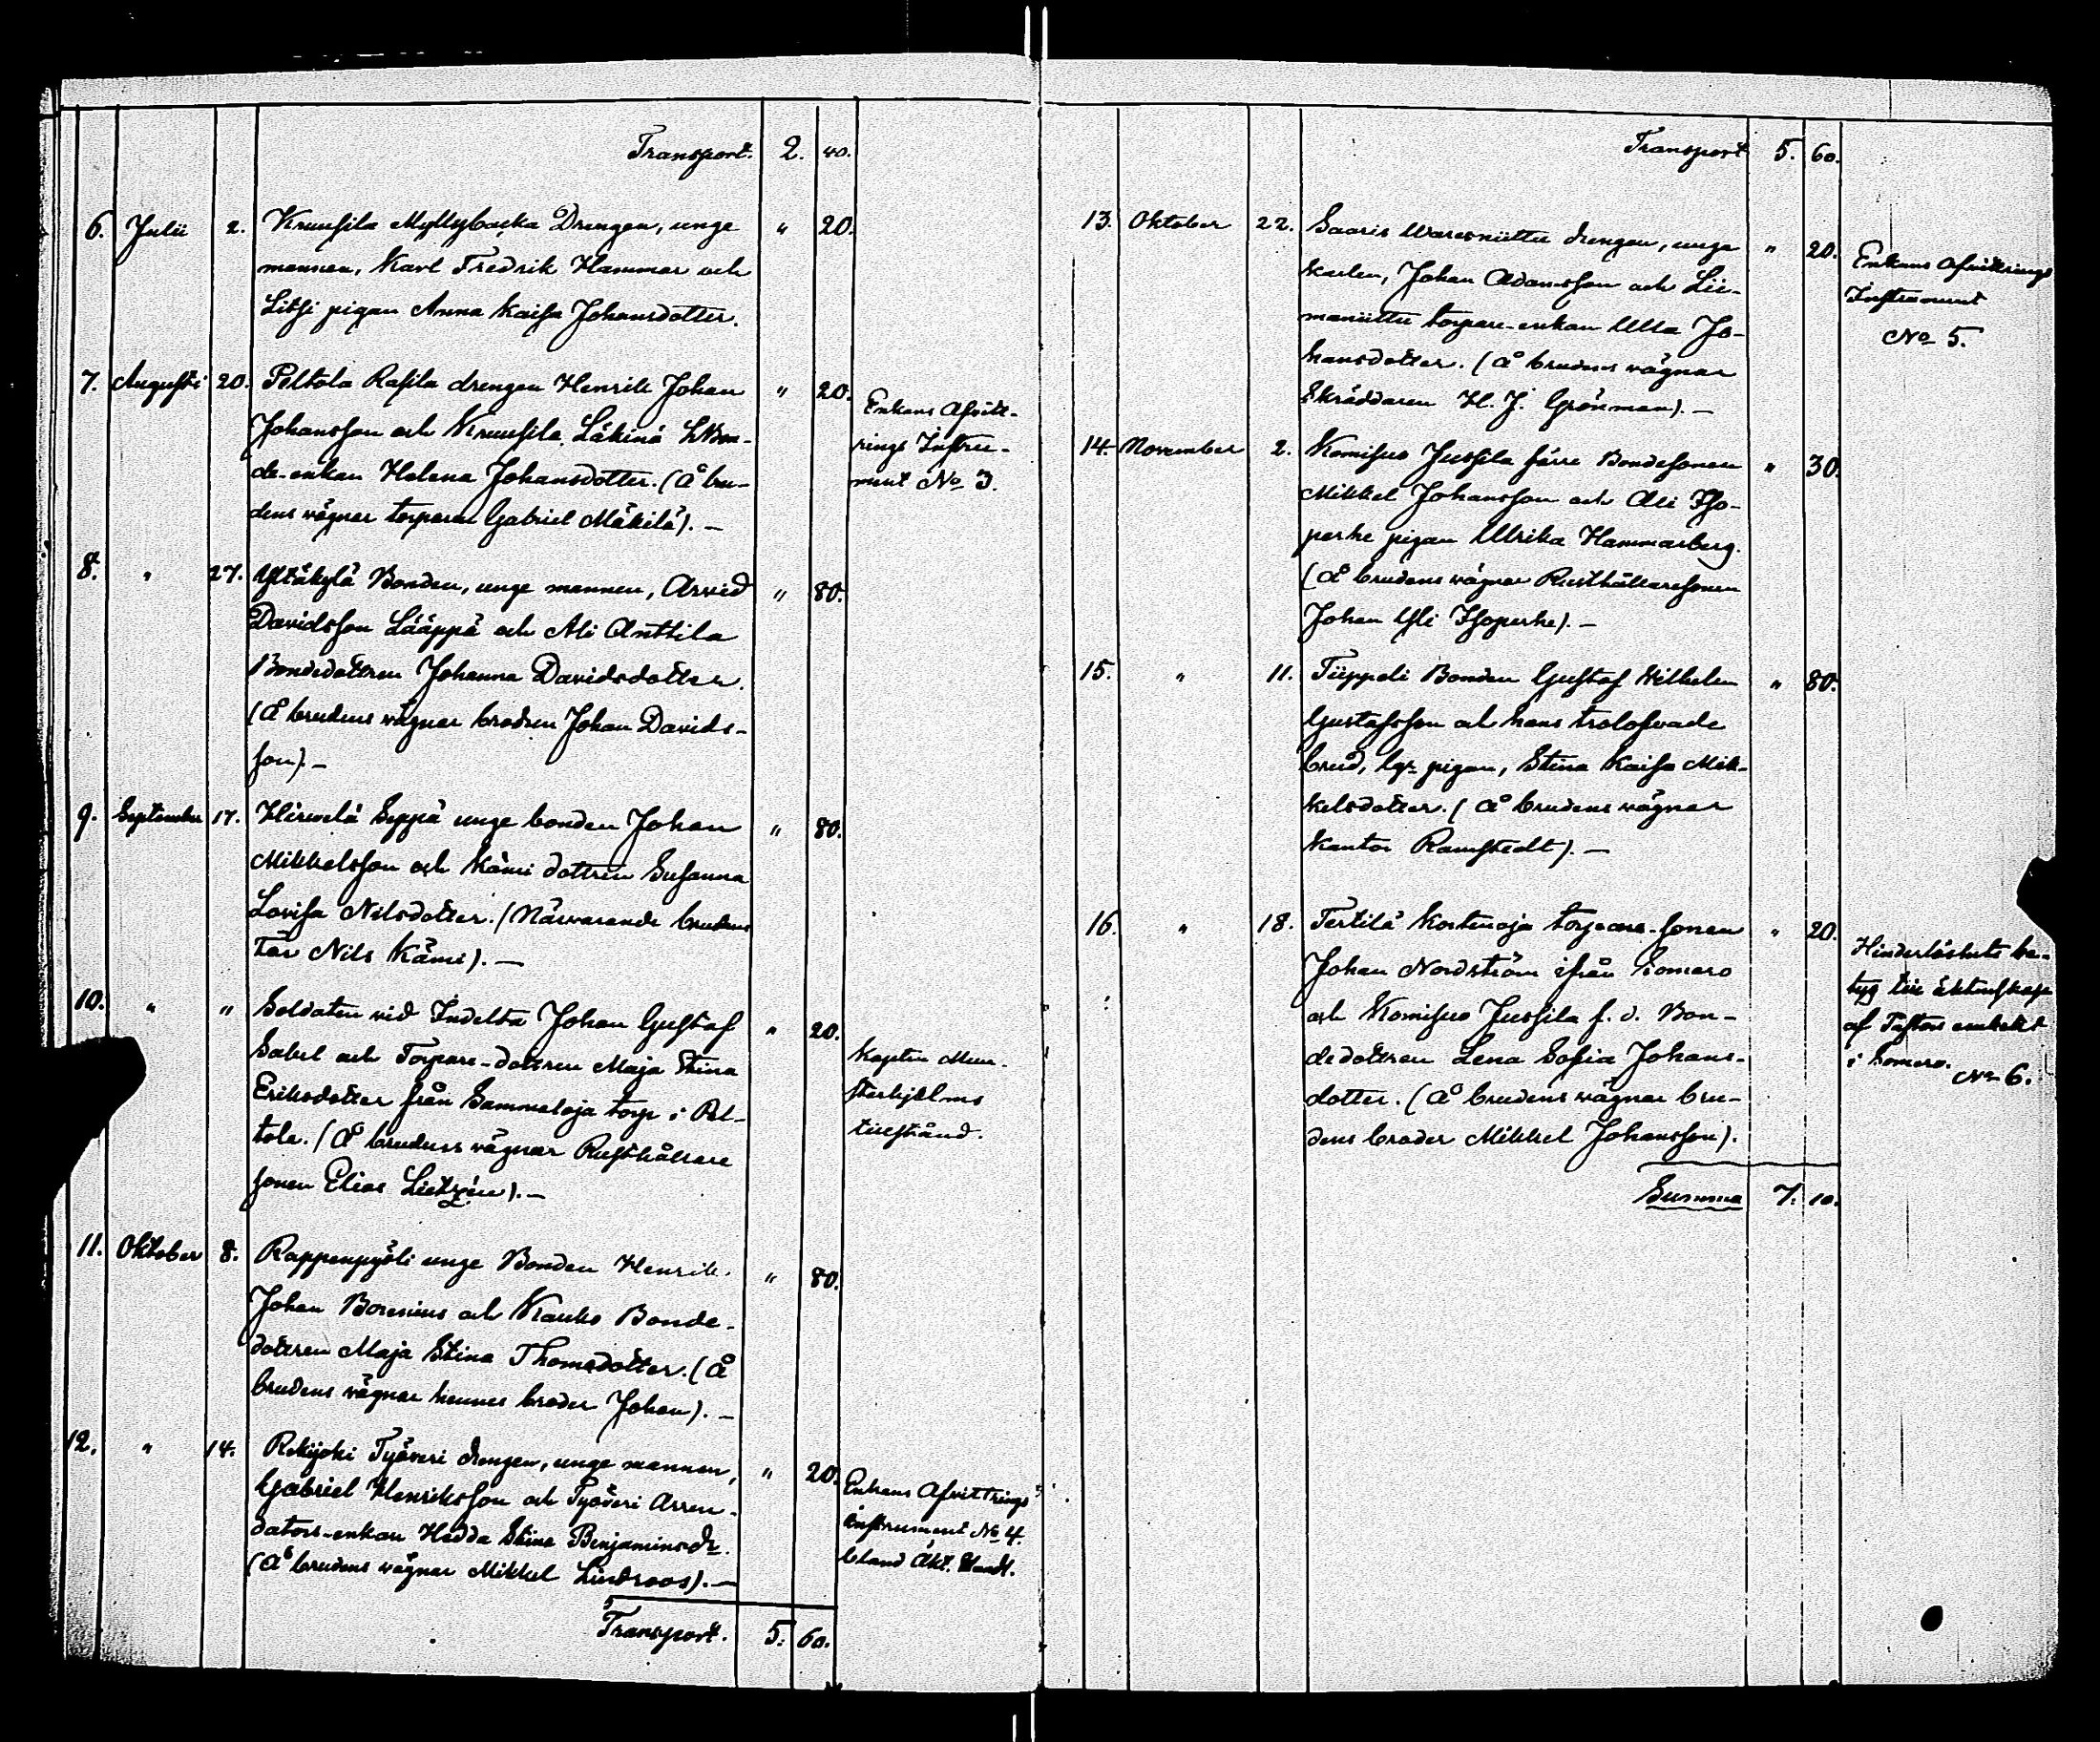 Transport. 2. 40.
6. Julii 2. Kruusila Myllybacka Drengen, unge " 20.
mannen, Karl Fredrik Hammar och
Litsi pigan Anna Kaisa Johansdotter.
7. Augusti 20. Peltola Rasila drengen Henrik Johan " 20.
Johansson och Kruusila Läkinä
de-enkan Helena Johansdotter. (Å bru-
dens vägnar torparen Gabriel Mäkilä). —
Enkans Afvitt-
rings Instru-
ment No 3.
8. " 27. Yltäkylä Bonden, unge mannen, Arvid " 80.
Davidsson Lääppä och Ali Anttila
Bondedottren Johanna Davidsdotter.
(Å brudens vägnar brodren Johan Davids-
son). —
9. September 17. Hirvelä Seppä unge bonden Johan " 80.
Mikkelsson och Kämi dottren Susanna
Lovisa Nilsdotter. (Närvarande brudens
far Nils Kämi). —
10. " " Soldaten vid Indelta Johan Gustaf " 20.
Sabel och Torpare-dottren Maja Stina
Eriksdotter från Sammaloja torp i Pel-
tola. (Å brudens vägnar Rusthållare
sonen Elias Lietzén). —
Kapten Mun-
sterhjelms
tillstånd.
11. Oktober 8. Rappenpyöli unge Bonden Henrik " 80.
Johan Borenius och Kauko Bonde-
dottren Maja Stina Thomadotter. (Å
brudens vägnar hennes broder Johan). —
12. " 14. Rekijoki Työveri drengen, unge mannen, " 20.
Gabriel Henriksson och Työveri Arren-
dators-enkan Hedda Stina Benjaminsdr.
(Å brudens vägnar Mikkel Lindroos). —
Enkans Afvittrings
instrument No 4.
bland Äkt. Handl.
Transport. 5. 60.
Transport 5. 60.
13. Oktober 22. Saaris Waresniittu drengen, unge " 20.
karlen, Johan Adamsson och Lii-
maniittu torpare-enkan Ulla Jo-
hansdotter. (Å brudens vägnar
Skräddaren H. J. Grönman). —
Enkans Afvittrings
Instrument
No 5.
14. November 2. Komisuo Jussila förre Bondesonen " 30.
Mikkel Johansson och Ali Iso-
perhe pigan Ulrika Hammarberg.
(Å brudens vägnar Rusthållaresonen
Johan Yli Isoperhe). —
15. " 11. Tiippeli Bonden Gustaf Wilhelm " 80.
Gustafsson och hans trolofvade
brud, pigan, Stina Kaisa Mik-
kelsdotter. (Å brudens vägnar
Kantor Ramstedt). —
16. " 18. Tertilä Kostenoja torpare-sonen " 20.
Johan Nordström ifrån Somero
och Komisuo Jussila f. d. Bon-
dedottren Lena Sofia Johans-
dotter. (Å brudens vägnar bru-
dens broder Mikkel Johansson).
Hinderlöshets be-
tyg till äktenskap
af Pastors embetet
i Somero.
No 6.
Summa 7. 10.